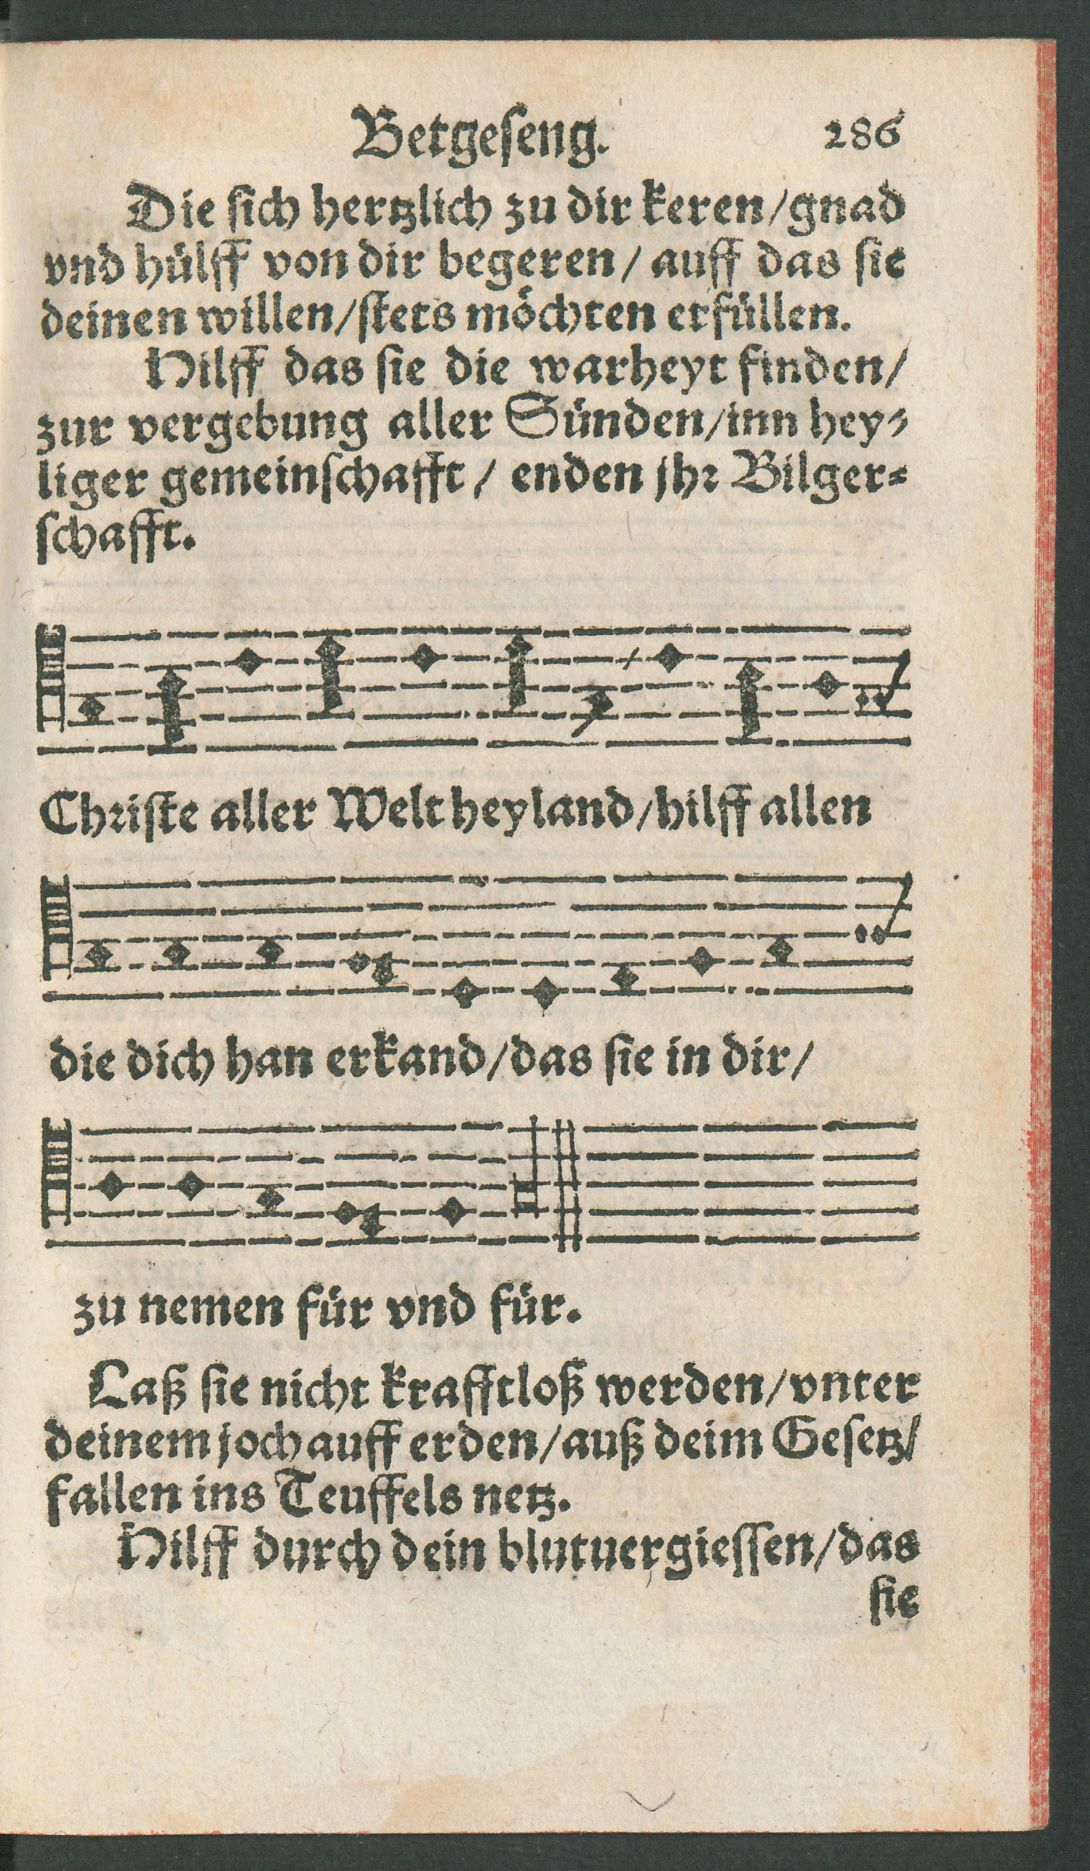 Betgeseng. 286
Die sich hertzlich zu dir keren/gnad
vnd hülff von dir begeren/ auff das sie
deinen willen/stets möchten erfüllen.
Hilff das sie die warheyt finden/
zur vergebung aller Sünden/inn hey-
liger gemeinschafft/ enden jhr Bilger-
schafft.
Christe aller Welt heyland/hilff allen
die dich han erkand/das sie in dir/
zu nemen für vnd für.
Laß sie nicht krafftloß werden/vnter
deinem joch auff erden/auß deim Gesetz/
fallen ins Teuffels netz.
Hilff durch dein blutuergiessen/das
sie